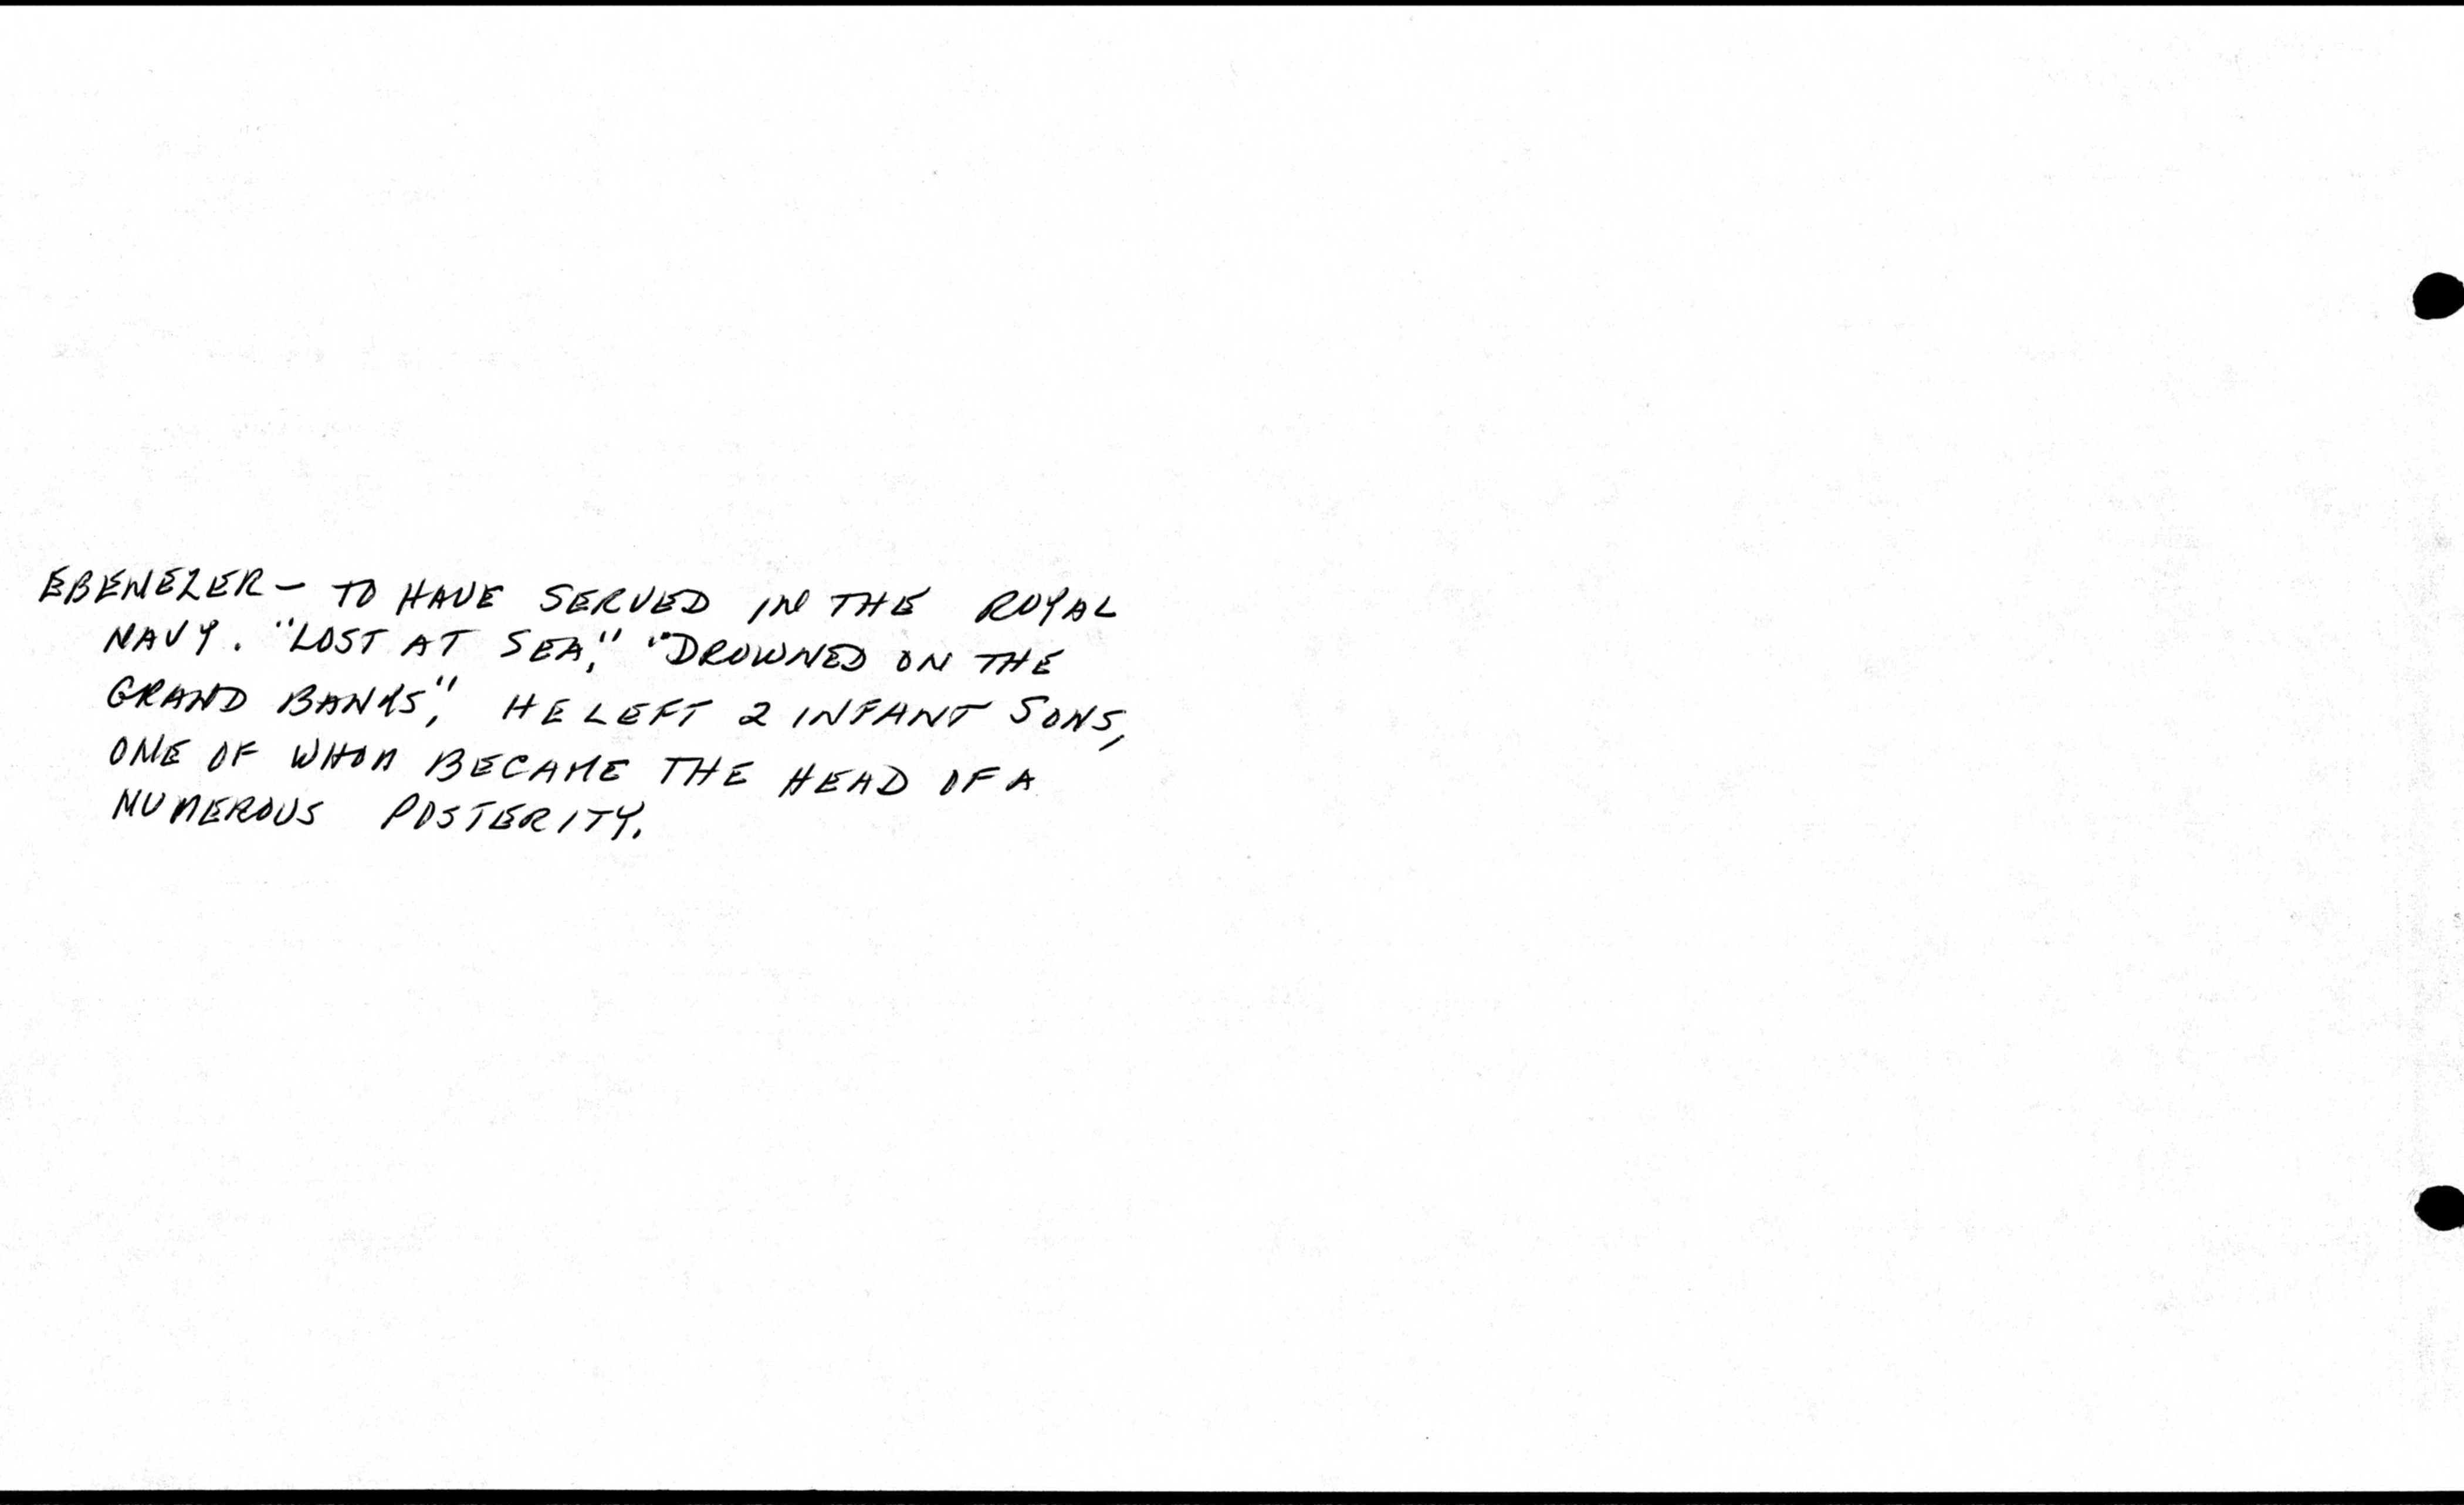 EBENEZER – TO HAVE SERVED IN THE ROYAL
NAVY. "LOST AT SEA," "DROWNED ON THE
GRAND BANKS," HE LEFT 2 INFANT SONS,
ONE OF WHOM BECAME THE HEAD OF A
NUMEROUS POSTERITY.